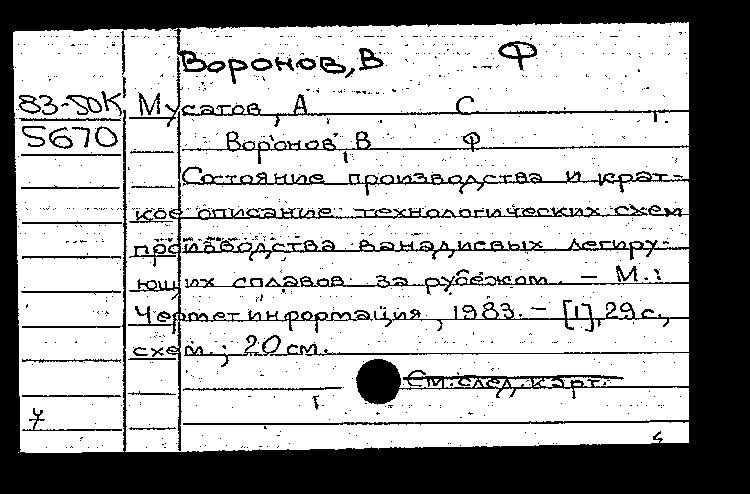 Воронов, В Ф
83-50К Мусатов, А С
5670 Воронов, В Ф
Состояние производства и крат-
кое описание технологических схем
производства ванадиевых легиру-
ющих сплавов за рубежом. - М.:
Черметинформация, 1983. - [1], 29 с.,
схем.; 20 см.
См. след. карт.